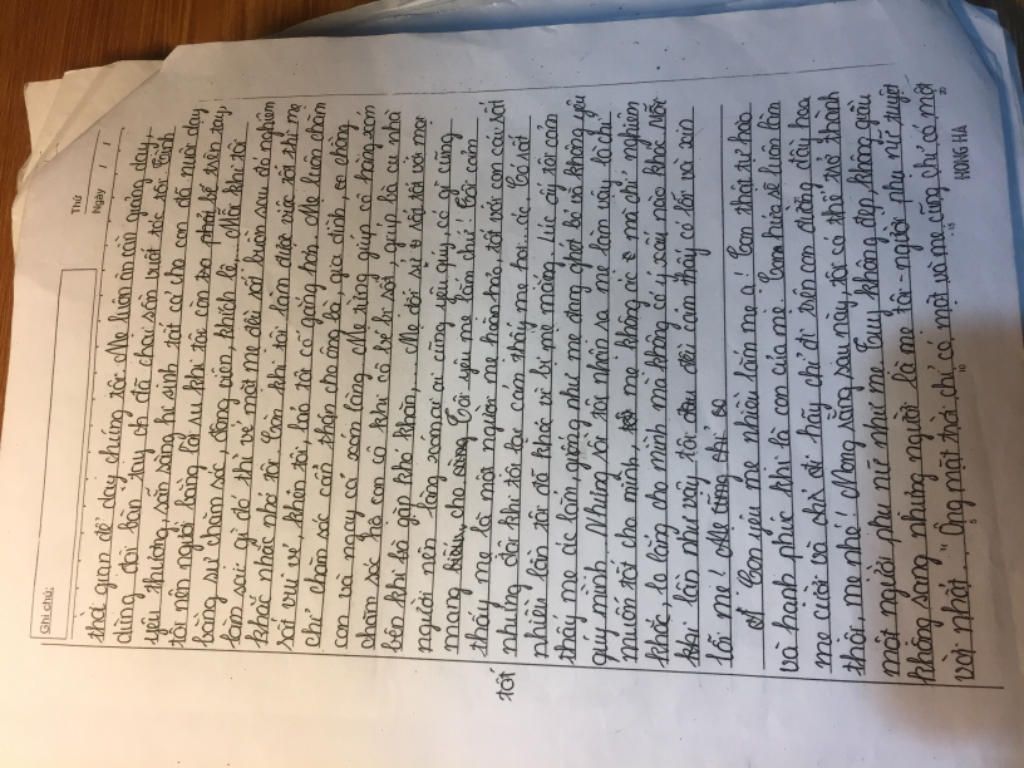 Ghi chú:
Thứ
Ngày / /
thời gian để dạy chúng tôi. Mẹ luôn ân cần giảng dạy,
dùng đôi bàn tay đã chai sần vuốt tóc tôi. Tình
yêu thương, sẵn sàng hi sinh tất cả cho con đã nuôi dạy
tôi nên người bằng lời ru khi tôi còn phải bế trên tay,
bằng sự chăm sóc, động viên, khích lệ... Mỗi khi tôi
làm sai gì đó thì vẻ mặt mẹ đều rất buồn sau đó nghiêm
khắc nhắc nhở tôi. Còn khi tôi làm được việc tốt thì mẹ
rất vui vẻ, khen tôi, bảo tôi cố gắng hơn. Mẹ luôn chăm
chỉ chăm sóc cẩn thận cho ông bà, gia đình, chồng
con và ngay cả xóm làng. Mẹ từng giúp cô hàng xóm
chăm sóc hộ con cô khi cô bé bị sốt, giúp bà cụ nhà
bên khi bà gặp khó khăn,... Mẹ đối sử rất tốt với mọi
người nên làng xóm ai cũng yêu quý, có gì cũng
mang cho. Tôi yêu mẹ lắm chứ! Tôi cảm
thấy mẹ là một người mẹ hoàn hảo, tốt với con cái rồi
tốt
nhưng đôi khi tôi lại cảm thấy mẹ hơi ác. Có rất
nhiều lần tôi đã khóc vì bị mẹ mắng, lúc ấy tôi cảm
thấy mẹ ác lắm, giống như mẹ đang ghét bỏ và không yêu
quý mình. Nhưng rồi tôi nhận ra mẹ làm vậy là chỉ
muốn tốt cho mình, mẹ không ác mà chỉ nghiêm
khắc, lo lắng cho mình mà không có ý xấu nào khác. Mỗi
lần như vậy tôi đều cảm thấy có lỗi và xin
lỗi mẹ!
Con yêu mẹ nhiều lắm mẹ ạ! Con thật tự hào
và hạnh phúc khi là con của mẹ. Con hứa sẽ luôn làm
mẹ cười và chỉ hãy chỉ đi trên con đường đầy hoa
thôi, mẹ nhé! Mong rằng sau này, tôi có thể trở thành
một người phụ nữ như mẹ. Tuy không đẹp, không giàu
không sang nhưng người là mẹ tôi - người phụ nữ tuyệt
vời nhất. "Ông mặt trời chỉ có một và mẹ cũng chỉ có một
5
10
15
20
HONG HA